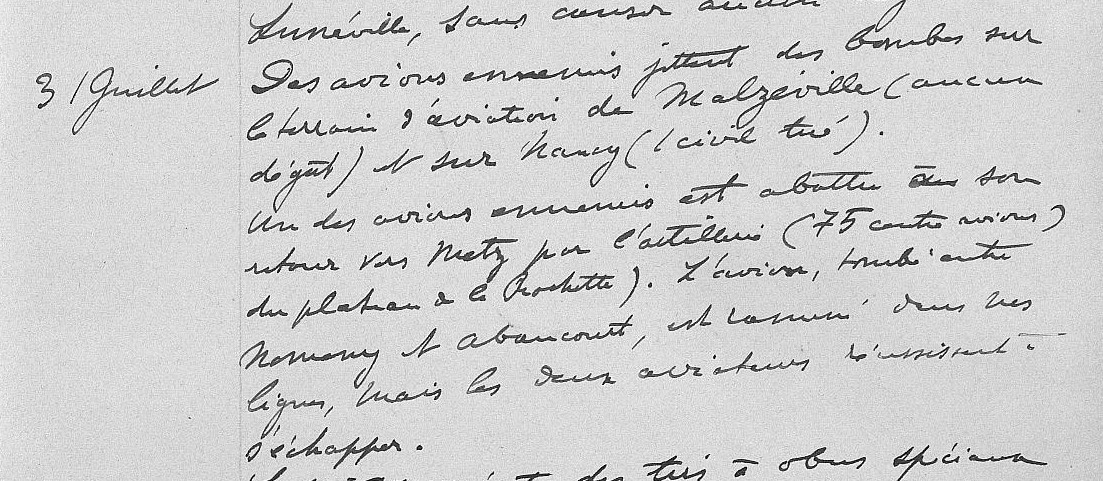 Lunéville, sans causer aucun
31 Juillet Des avions ennemis jettent des bombes sur
le terrain d'aviation de Malzéville (aucun
dégât) et sur Nancy (1 civil tué).
Un des avions ennemis est abattu son
retour vers Metz par l'artillerie (75 contre avions)
du plateau de la Rochette). L'avion, tombé entre
Nomeny et Abaucourt, est ramené dans nos
lignes, mais les deux aviateurs réussissent à
s'échapper.
des tirs à obus spéciaux